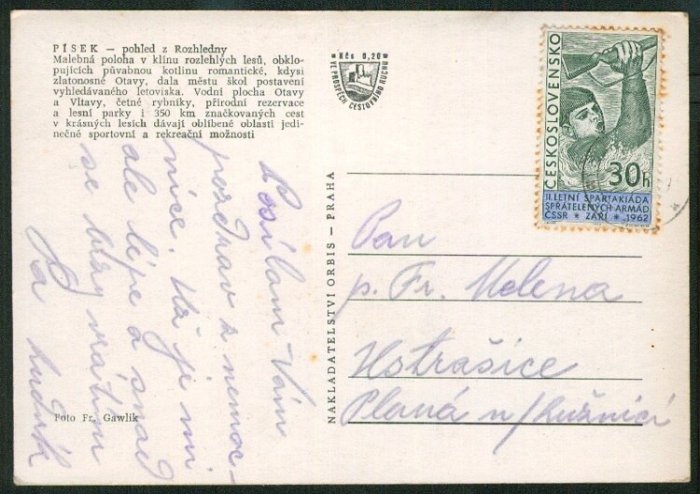 PÍSEK — pohled z Rozhledny
Malebná poloha v klínu rozlehlých lesů, obklo-
pujících půvabnou kotlinu romantické, kdysi
zlatonosné Otavy, dala městu škol postavení
vyhledávaného letoviska. Vodní plocha Otavy
a Vltavy, četné rybníky, přírodní rezervace
a lesní parky i 350 km značkovaných cest
v krásných lesích dávají oblíbené oblasti jedi-
nečné sportovní a rekreační možnosti
Kčs 0,20
VE PROSPĚCH CESTOVNÍHO RUCHU
ČESKOSLOVENSKO
30h
II. LETNÍ SPARTAKIÁDA
SPŘÁTELENÝCH ARMÁD
ČSSR ★ ZÁŘÍ ★ 1962
Posílám Vám
pozdrav z nemoc-
nice. Už je mi
ale lépe a snad
se brzy vrátím
Luděk
NAKLADATELSTVÍ ORBIS — PRAHA
Pan
p. Fr. Melena
Ustrašice
Planá n/Lužnicí
Foto Fr. Gawlik